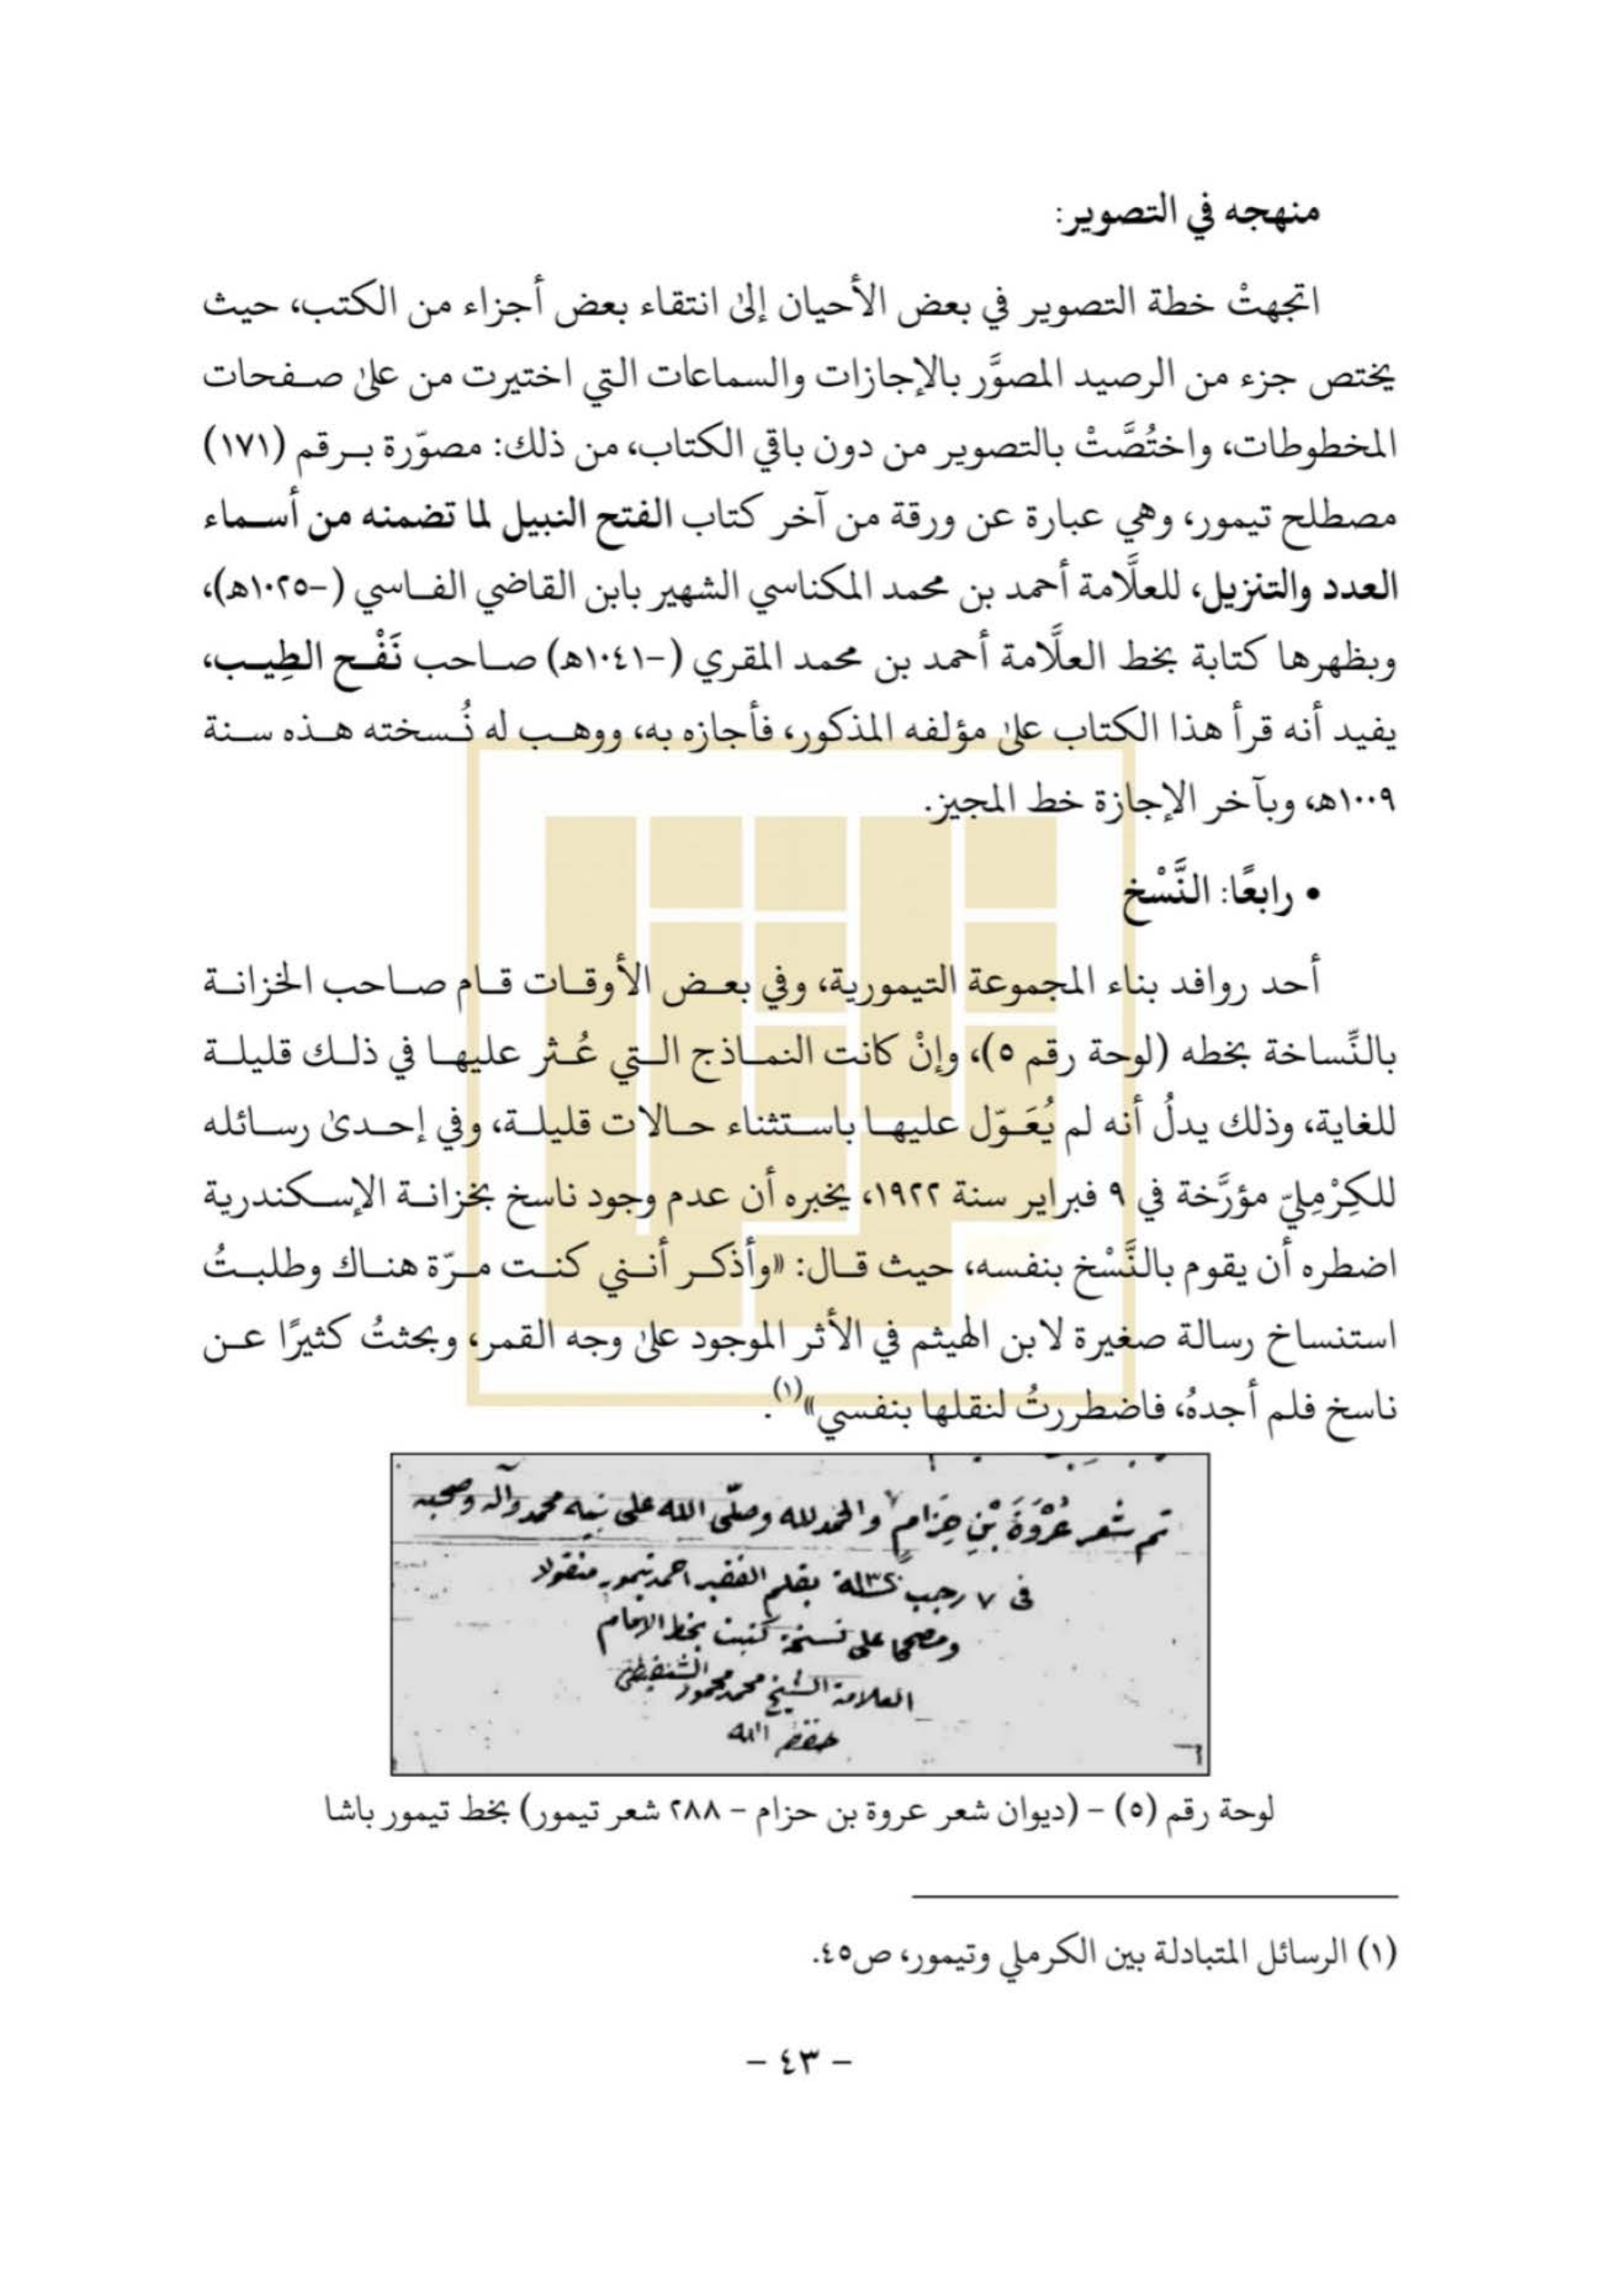 منهجه في التصوير:
اتجهتْ خطة التصوير في بعض الأحيان إلىٰ انتقاء بعض أجزاء من الكتب، حيث
يختص جزء من الرصيد المصوَّر بالإجازات والسماعات التي اختيرت من علىٰ صفحات
المخطوطات، واختُصَّتْ بالتصوير من دون باقي الكتاب، من ذلك: مصوّرة برقم (١٧١)
مصطلح تيمور، وهي عبارة عن ورقة من آخر كتاب الفتح النبيل لما تضمنه من أسماء
العدد والتنزيل، للعلَّامة أحمد بن محمد المكناسي الشهير بابن القاضي الفاسي (-١٠٢٥ه)،
وبظهرها كتابة بخط العلَّامة أحمد بن محمد المقري (-١٠٤١ه) صاحب نَفْح الطِيب،
يفيد أنه قرأ هذا الكتاب علىٰ مؤلفه المذكور، فأجازه به، ووهب له نُسخته هذه سنة
١٠٠٩ه، وبآخر الإجازة خط المجيز.
• رابعًا: النَّسْخ
أحد روافد بناء المجموعة التيمورية، وفي بعض الأوقات قام صاحب الخزانة
بالنِّساخة بخطه (لوحة رقم ٥)، وإنْ كانت النماذج التي عُثر عليها في ذلك قليلة
للغاية، وذلك يدلُ أنه لم يُعَوّل عليها باستثناء حالات قليلة، وفي إحدىٰ رسائله
للكِرْمِليّ مؤرَّخة في ٩ فبراير سنة ١٩٢٢، يخبره أن عدم وجود ناسخ بخزانة الإسكندرية
اضطره أن يقوم بالنَّسْخ بنفسه، حيث قال: «وأذكر أنني كنت مرّة هناك وطلبتُ
استنساخ رسالة صغيرة لابن الهيثم في الأثر الموجود علىٰ وجه القمر، وبحثتُ كثيرًا عن
ناسخ فلم أجدهُ، فاضطررتُ لنقلها بنفسي»(١).
تم شعر عُرْوَةَ بْنِ حِزَامٍ والحمد لله وصلّى الله على نبيه محمد وآله وصحبه
فى ٧ رجب سنة ١٣٢٠ بقلم الفقير احمد تيمور منقولا
ومصححا على نسخة كتبت بخط الامام
العلامة الشيخ محمد محمود الشنقيطى
حفظه الله
لوحة رقم (٥) – (ديوان شعر عروة بن حزام – ٢٨٨ شعر تيمور) بخط تيمور باشا
(١) الرسائل المتبادلة بين الكرملي وتيمور، ص٤٥.
– ٤٣ –